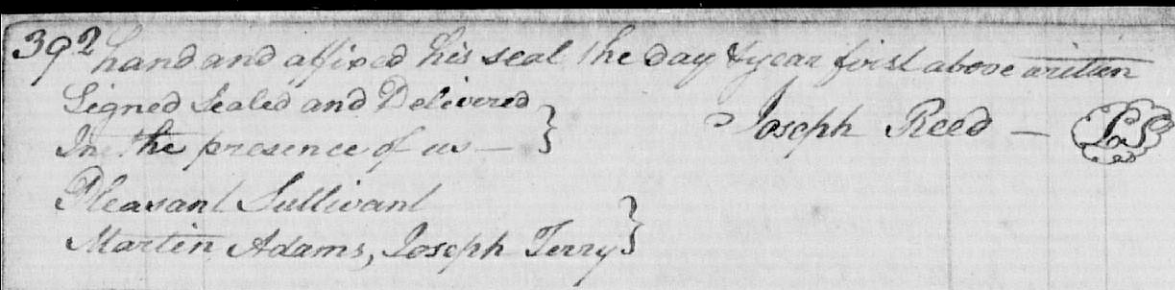 392 hand and affixed his seal the day & year first above writen
Signed Sealed and Delivered
In the presence of us — }
Joseph Reed — LS
Pleasant Sullivant
Martin Adams, Joseph Terry }